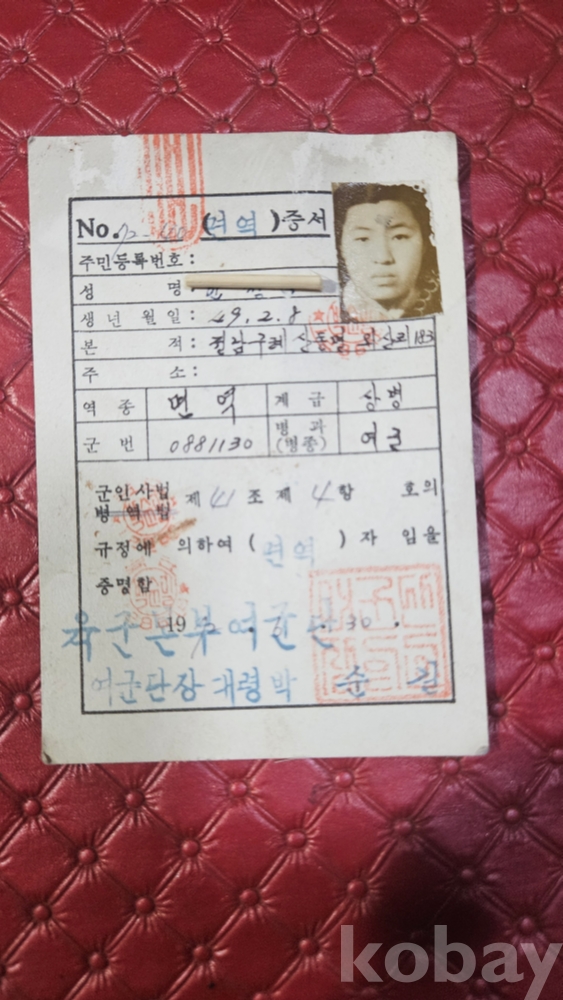 No. (면역)증서
주민등록번호 :
성 명 :
생년월일 : 49. 2. 8
본 적 : 전남 구례 산동면 외산리 183
주 소 :
역종 면역 계급 상병
군번 0881130 병과(병종) 여군
군인사법
병역법 제 41 조 제 4 항 호의
규정에 의하여 ( 면역 ) 자 임을
증명함
육군본부여군단
19 30 .
여군단장 대령 박 순
kobay